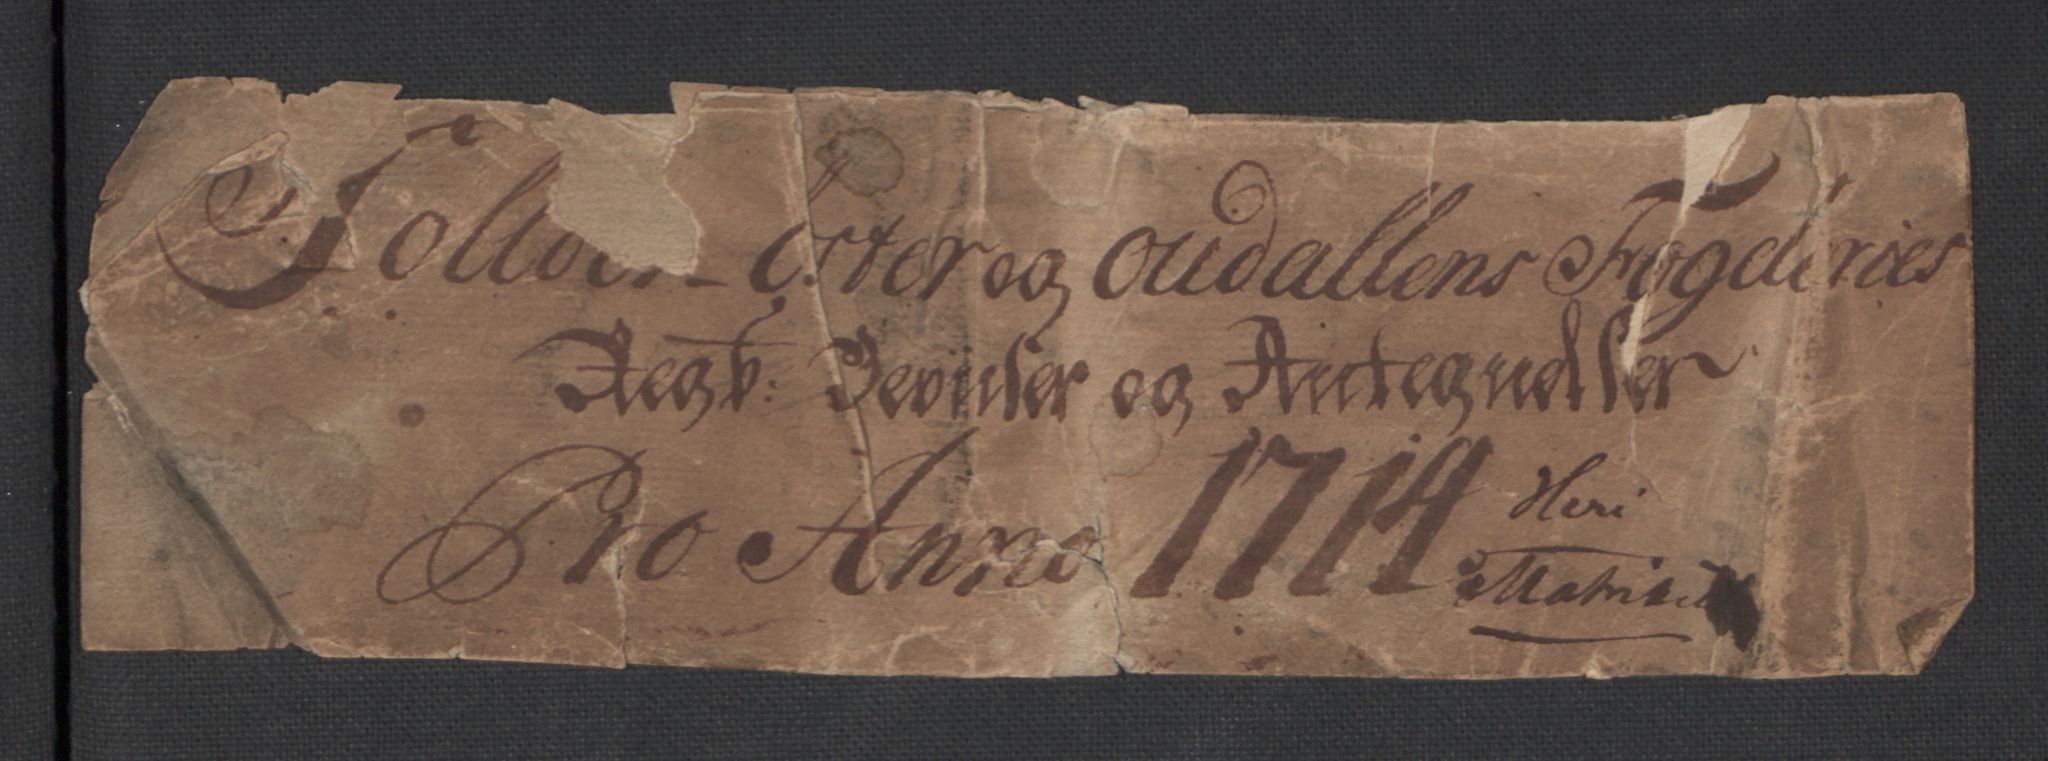 Soløer Øster og Oudallens Fogderies
Regb: Reviser og Antegnelser
Pro Anno 1714 Heri
Matrikel